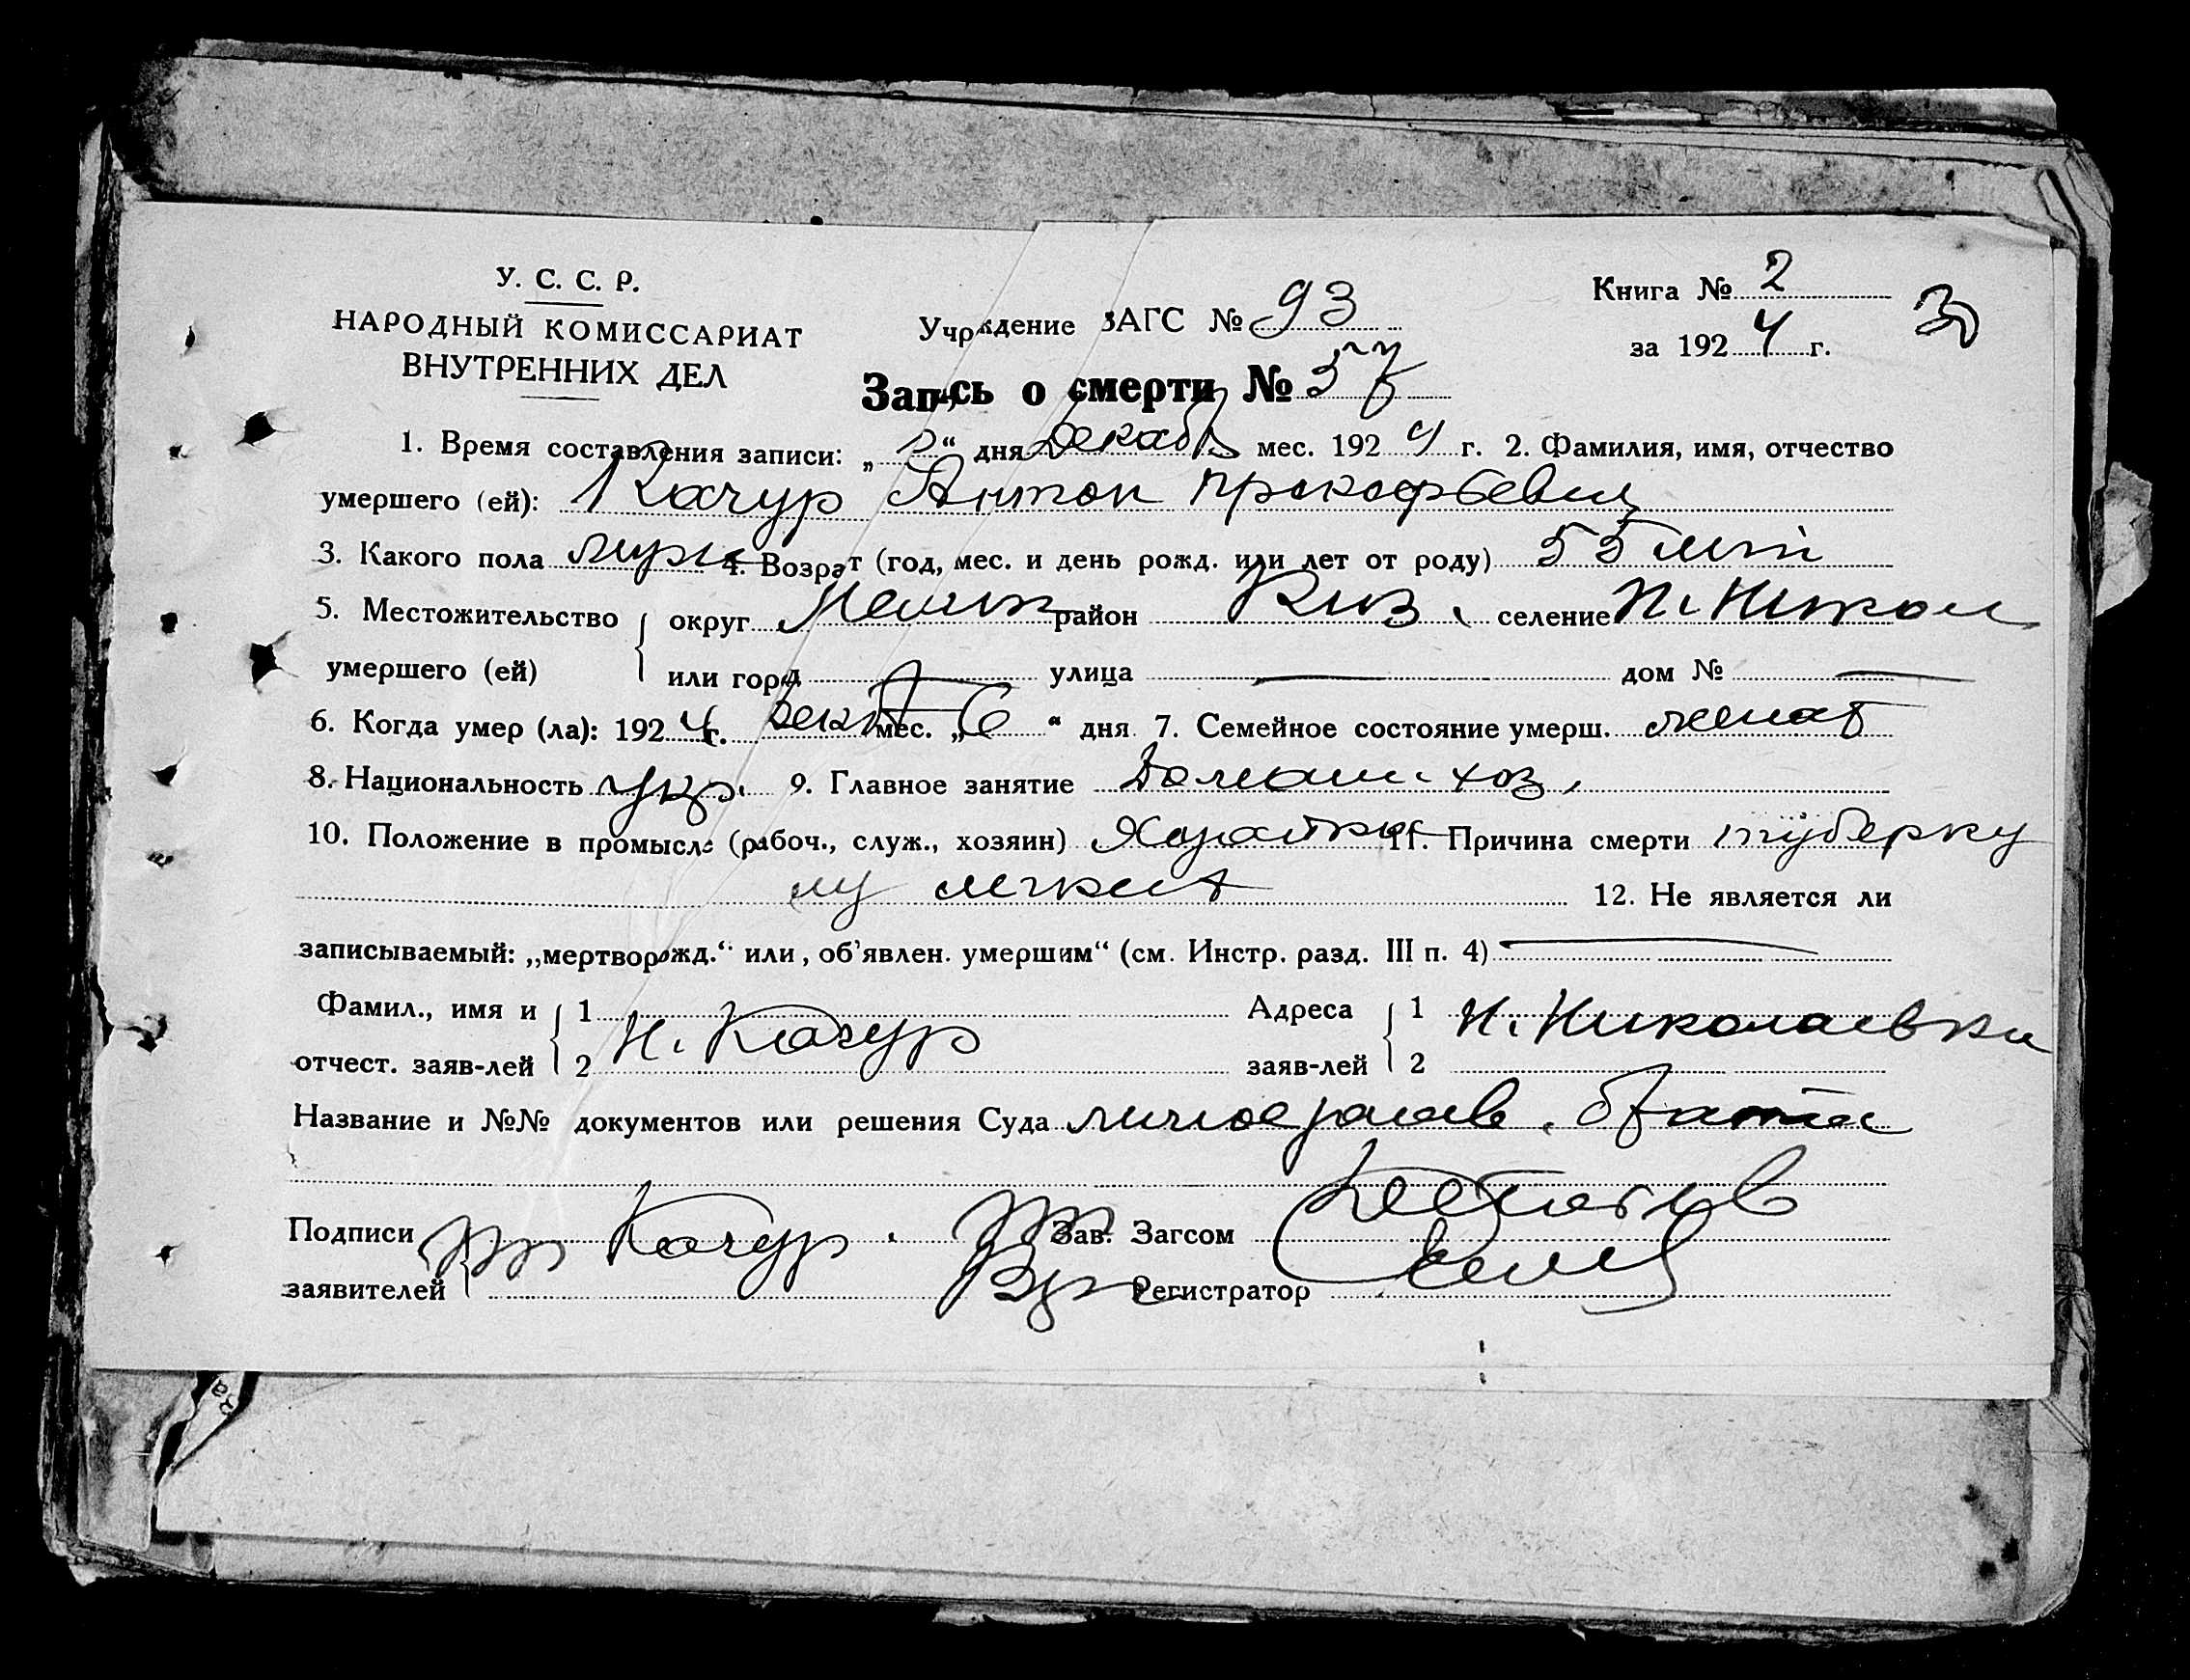 У. С. С. Р.
НАРОДНЫЙ КОМИССАРИАТ
ВНУТРЕННИХ ДЕЛ
Учреждение ЗАГС № 93
Книга № 2
за 1924 г.
30
Запись о смерти № 57
1. Время составления записи: „ “ дня Декабр мес. 1924 г. 2. Фамилия, имя, отчество
умершего (ей): Качур Антон Прокофьевич
3. Какого пола муж 4. Возраст (год, мес. и день рожд. или лет от роду) 55 лет
5. Местожительство умершего (ей) округ район селение Н. Никол
или город — улица — дом № —
6. Когда умер (ла): 1924 г. мес. „6“ дня 7. Семейное состояние умерш. женат
8. Национальность укр. 9. Главное занятие Домаш. хоз.
10. Положение в промысле (рабоч., служ., хозяин) 11. Причина смерти туберку
лу легких
12. Не является ли
записываемый: „мертворожд.“ или „об'явлен. умершим“ (см. Инстр. разд. III п. 4) —
Фамил., имя и отчест. заяв-лей 1 2 Н. Качур Адреса заяв-лей 1 Н. Николаевка 2
Название и №№ документов или решения Суда личное заяв. брата
Подписи заявителей Качур
Зав. Загсом
Регистратор